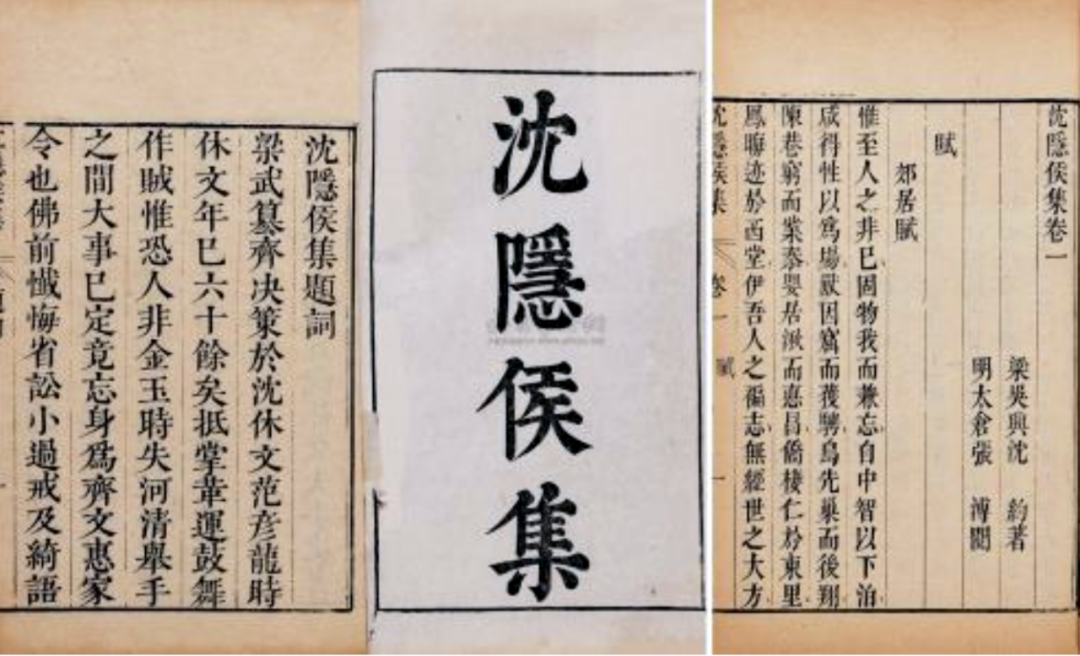 沈隱侯集題詞
梁武篡齊決策於沈休文范彦龍時
休文年已六十餘矣抵掌革運鼓舞
作賊惟恐人非金玉時失河清舉手
之間大事已定竟忘身爲齊文惠家
令也佛前懺悔省訟小過戒及綺語
沈隱侯集
沈隱侯集卷一
梁吳興沈 約著
明太倉張 溥閱
賦
郊居賦
惟至人之非已固物我而兼忘自中智以下洎
咸得性以爲場獸因窟而獲騁鳥先巢而後翔
陳巷窮而業泰嬰居湫而德昌僑棲仁於東里
鳳晦迹於西堂伊吾人之褊志無經世之大方
沈隱侯集 卷一 賦 一